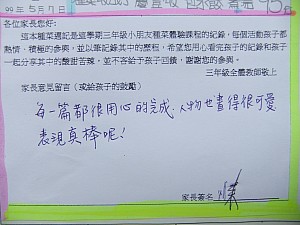 99年5月7日 95
各位家長您好:
這本種菜週記是這學期三年級小朋友種菜體驗課程的紀錄,每個活動孩子都
熱情、積極的參與,並以筆記錄其中的歷程,希望您用心看完孩子的紀錄和孩子
一起分享其中的酸甜苦辣,並不吝給予孩子回饋,謝謝您的參與。
三年級全體教師敬上
家長意見留言(或給孩子的鼓勵)
每一篇都很用心的完成,人物也畫得很可愛
表現真棒呢!
家長簽名